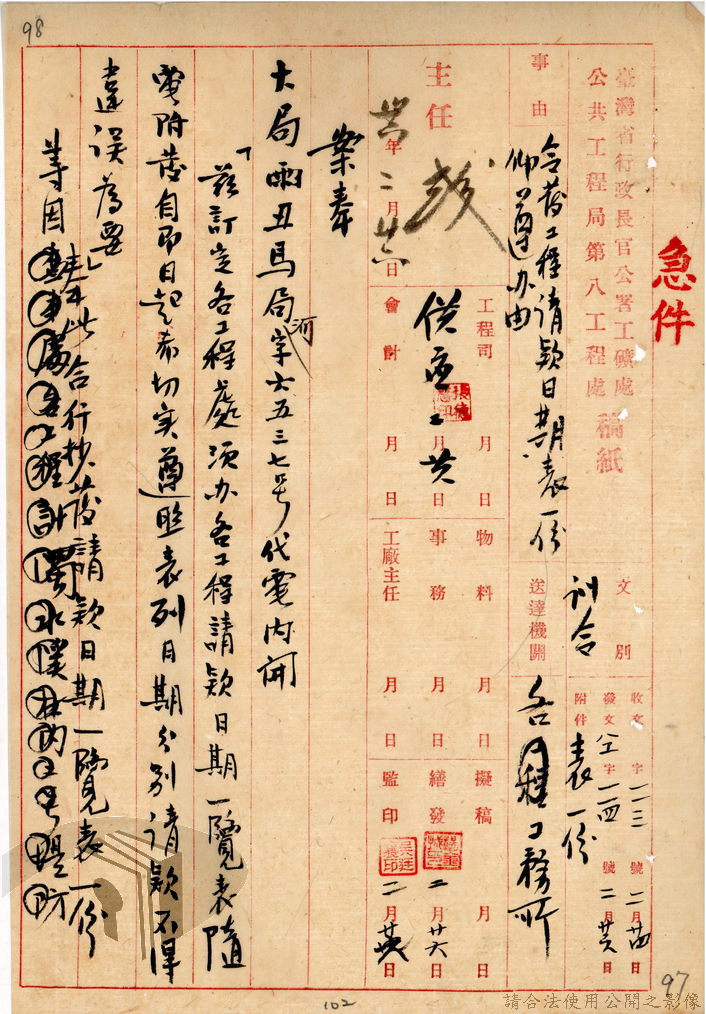 98
急件
臺灣省行政長官公署工礦處
公共工程局第八工程處
稿紙
文別
訓令
收文 字 一二三 號 二月廿四日
發文 公工字 一一四 號 二月廿六日
附件 表一份
事由
令發工程請款日期表一份
仰遵办由
送達機關
各工程工務所
主任
工程司 月 日
會計 月 日
物料 月 日
事務 月 日
工廠主任 月 日
擬稿 月 日
繕發 二月廿六日
監印 二月廿六日
卅六年二月廿六日
案奉
大局丑馬局河字六五三七号代電內開
「茲訂定各工程處須办各工程請款日期一覽表隨
電附發自即日起希切实遵照表列日期分別請款不得
違误為要」
等因奉此合行抄發請款日期一覽表一份
97
102
請合法使用公開之影像